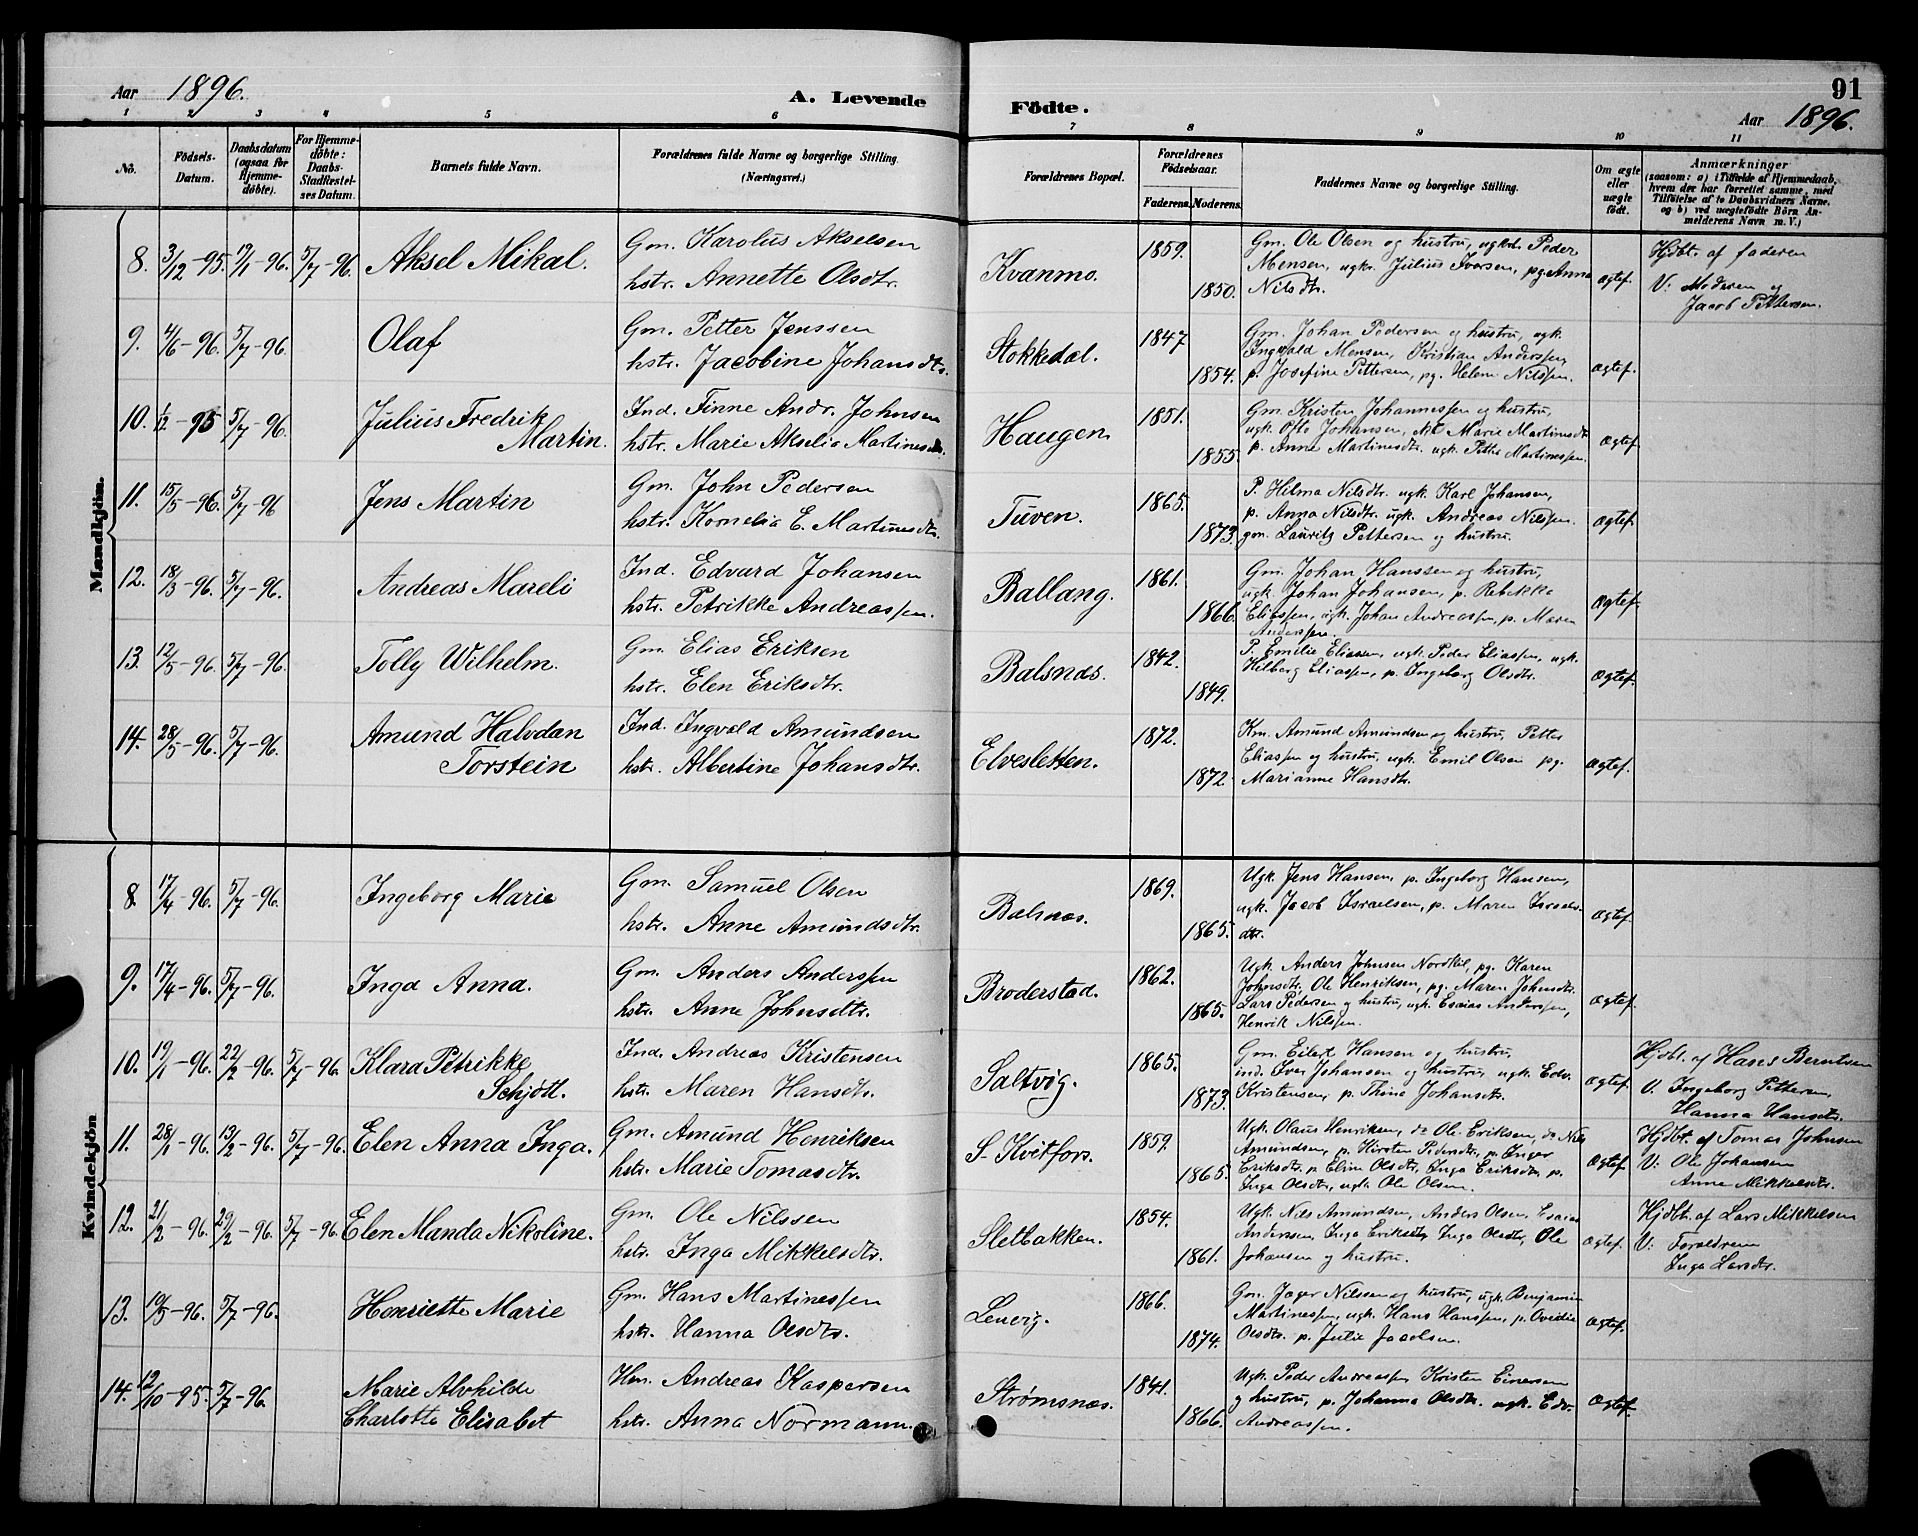 Aar 1896. A. Levende Födte. Aar 1896. 91
1 2 3 4 5 6 7 8 9 10 11
No. Födsels-Datum. Daabsdatum (ogsaa for Hjemmedöbte). For Hjemmedöbte: Daabs-Stadfestelses Datum. Barnets fulde Navn. Forældrenes fulde Navne og borgerlige Stilling. (Næringsvei.) Forældrenes Bopæl. Forældrenes Födselsaar. Faderens. Moderens. Faddernes Navne og borgerlige Stilling. Om ægte eller uægte födt. Anmærkninger (saasom: a) i Tilfælde af Hjemmedaab, hvem der har forrettet samme, med Tilföielse af to Daabsvidners Navne, og b) ved uægtefödte Börn Anmelderens Navn m.V.)
Mandkjön.
8. 3/12-95. 19/1-96. 5/7-96. Aksel Mikal. Gm. Karolus Akselsen
hstr. Annette Olsdtr. Kvanmo. 1859. 1850. Gm. Ole Olsen og hustru, ugk. Peder
Mensen, ugk. Julius Iversen, pg. Anna
Nilsdtr. Ægtef. Hjdbt. af faderen
V: Moderen og
Jacob Pettersen.
9. 4/6-96. 5/7-96. Olaf Gm. Petter Jenssen
hstr. Jacobine Johansdtr. Stokkedal. 1847 1854. Gm. Johan Pedersen og hustru, ugk.
Ingvald Mensen, Kristian Anderssen,
p. Josefine Pettersen, pg. Helene Nilssen. Ægtef.
10. 1/12-95 5/7-96. Julius Fredrik
Martin. Ind. Finne Andr. Johnsen
hstr. Marie Akselia Martinesdtr. Haugen. 1851. 1855. Gm. Kristen Johannessen og hustru,
ugk. Otto Johansen, Marie Martinusdtr.
p. Anne Martinesdtr. ugk. Petter Martinessen. Ægtef.
11. 15/5-96. 5/7-96 Jens Martin Gm. John Pedersen
hstr. Kornelia E. Martinusdtr. Tuven. 1865. 1873. P. Hilma Nilsdtr. ugk. Karl Johansen,
p. Anna Nilsdtr. ugk. Andreas Nilssen.
gm. Lauritz Pettersen og hustru. Ægtef.
12. 18/3-96. 5/7-96. Andreas Mareli Ind. Edvard Johansen
hstr. Petrikke Andreassen. Ballang. 1861. 1866. Gm. Johan Hanssen og hustru,
ugk. Johan Johansen, p. Rebekka
Eliassen, ugk. Johan Andreassen, p. Maren
Anderssen. Ægtef.
13. 12/5-96. 5/7-96. Tolly Wilhelm. Gm. Elias Eriksen
hstr. Elen Eriksdtr. Balsnæs. 1842. 1849. P. Emilie Eliassen, ugk. Peder Eliassen, ugk.
Hilberg Eliassen, p. Ingeborg Olsdtr. Ægtef.
14. 28/5-96. 5/7-96. Amund Halvdan
Torstein Ind. Ingvald Amundsen
hstr. Albertine Johansdtr. Elvesletten. 1872. 1872. Km. Amund Amundsen og hustru, Petter
Eliassen og hustru, ugk. Emil Olsen pg.
Marianne Hansdtr. Ægtef.
Kvindekjön
8. 17/4-96. 5/7-96. Ingeborg Marie Gm. Samuel Olsen
hstr. Anne Amundsdtr. Balsnæs. 1869. 1865. Ugk. Jens Hansen, p. Ingeborg Hansen,
ugk. Jacob Israelsen, p. Maren Israels-
dtr. Ægtef.
9. 17/4-96. 5/7-96. Inga Anna. Gm. Anders Anderssen
hstr. Anne Johnsdtr. Broderstad. 1862. 1865. Ugk. Anders Johnsen Nordkil, pg. Karen
Johnsdtr. Ole Henriksen, pg. Maren Johnsdtr.
Lars Pedersen og hustru, ugk. Esaias Anderssen,
Henrik Nilssen. Ægtef.
10. 19/1-96. 22/2-96. 5/7-96. Klara Petrikke
Schjött. Ind. Andreas Kristensen
hstr. Maren Hansdtr. Saltvig. 1865. 1873. Gm. Eilert Hansen og hustru,
ind. Iver Johansen og hustru, ugk. Edv.
Kristensen, p. Thine Johansdtr. Ægtef. Hjdbt. af Hans Berntsen
V. Ingeborg Pettersen,
Hanna Hansdtr.
11. 28/1-96. 13/2-96. 5/7-96. Elen Anna Inga. Gm. Amund Henriksen
hstr. Marie Tomasdtr. S. Kvitfors. 1859. 1865. Ugk. Olaus Henriksen, do Ole Eriksen, do Nils
Amundsen, p. Kirsten Pedersdtr, p. Inger
Eriksdtr. p. Eline Olsdtr, Inga Eriksdtr, p.
Inga Olsdtr, ugk. Ole Olsen. Ægtef Hjdbt. af Tomas Johnsen
V: Ole Johansen
Anne Mikkelsdtr.
12. 21/2-96. 29/2-96. 5/7-96. Elen Manda Nikoline. Gm. Ole Nilssen
hstr. Inga Mikkelsdtr. Sletbakken. 1854. 1861. Ugk. Nils Amundsen, Anders Olsen, Esaias
Anderssen, Inga Eriksdtr, Inga Olsdtr, Ole
Johansen og hustru. Ægtef. Hjdbt. af Lars Mikkelsen
V: Foraldrene
Inga Larsdtr.
13. 10/5-96. 5/7-96. Henriette Marie Gm. Hans Martinessen
hstr. Hanna Olsdtr. Lenvig. 1866. 1874. Gm. Jager Nilssen og hustru, ugk. Benjamin
Martinessen, ugk. Hans Hanssen, p. Ovidia
Olsdtr. p. Julie Jacobsen. Ægtef.
14. 12/10-95. 5/7-96. Marie Alvhilde
Charlotte Elisabet Hm. Andreas Kaspersen
hstr. Anna Normann. Strømsnæs. 1841. 1866. Ugk. Peder Andreassen Kristen Einersen
og hustru, p. Johanna Olsdtr. ugk. Edv.
Andreassen. Ægtef.